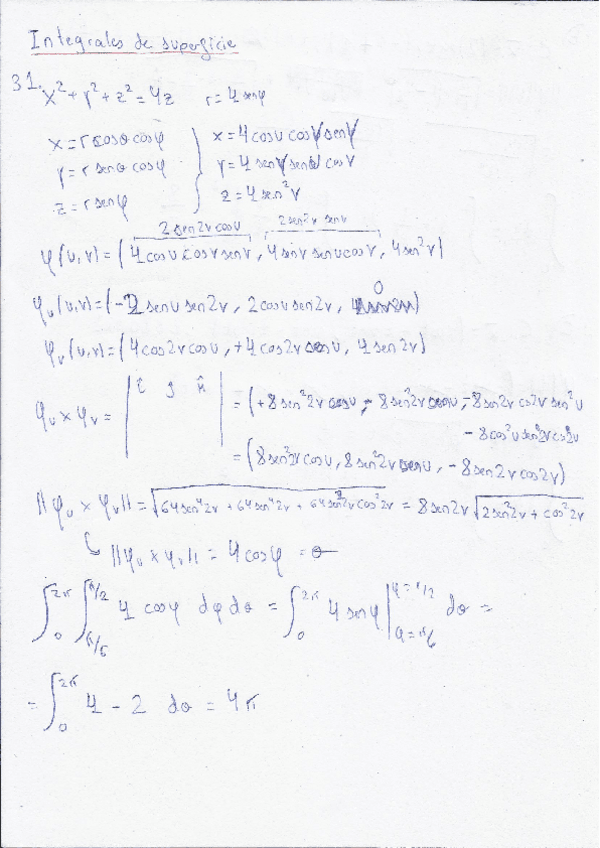 Integrales de superficie
31. x² + y² + z² = 4z r = 4 senφ
x = r cosθ cosφ } x = 4 cosu cosv senv
y = r senθ cosφ } y = 4 senv senu cosv
z = r senφ } z = 4 sen²v
2 sen2v cosu 2 sen2v senu
φ(u,v) = (4 cosu cosv senv, 4 senv senu cosv, 4 sen²v)
φᵤ(u,v) = (-2 senu sen2v, 2 cosu sen2v, 0)
φᵥ(u,v) = (4 cos2v cosu, +4 cos2v senu, 4 sen2v)
φᵤ × φᵥ = | î ĵ k̂ | = (+8 sen²2v cosu, - 8 sen²2v senu, -8 sen2v cos2v sen²u
- 8 cos²u sen2v cos2v)
= (8 sen²2v cosu, 8 sen²2v senu, -8 sen2v cos2v)
||φᵤ × φᵥ|| = √(64 sen⁴2v + 64 sen⁴2v + 64 sen²2v cos²2v) = 8 sen2v √(2 sen²2v + cos²2v)
||φᵤ × φᵥ|| = 4 cosφ =
∫₀^2π ∫_π/6^π/2 4 cosφ dφ dθ = ∫₀^2π 4 senφ |_φ=π/6^φ=π/2 dθ =
= ∫₀^2π 4 - 2 dθ = 4π